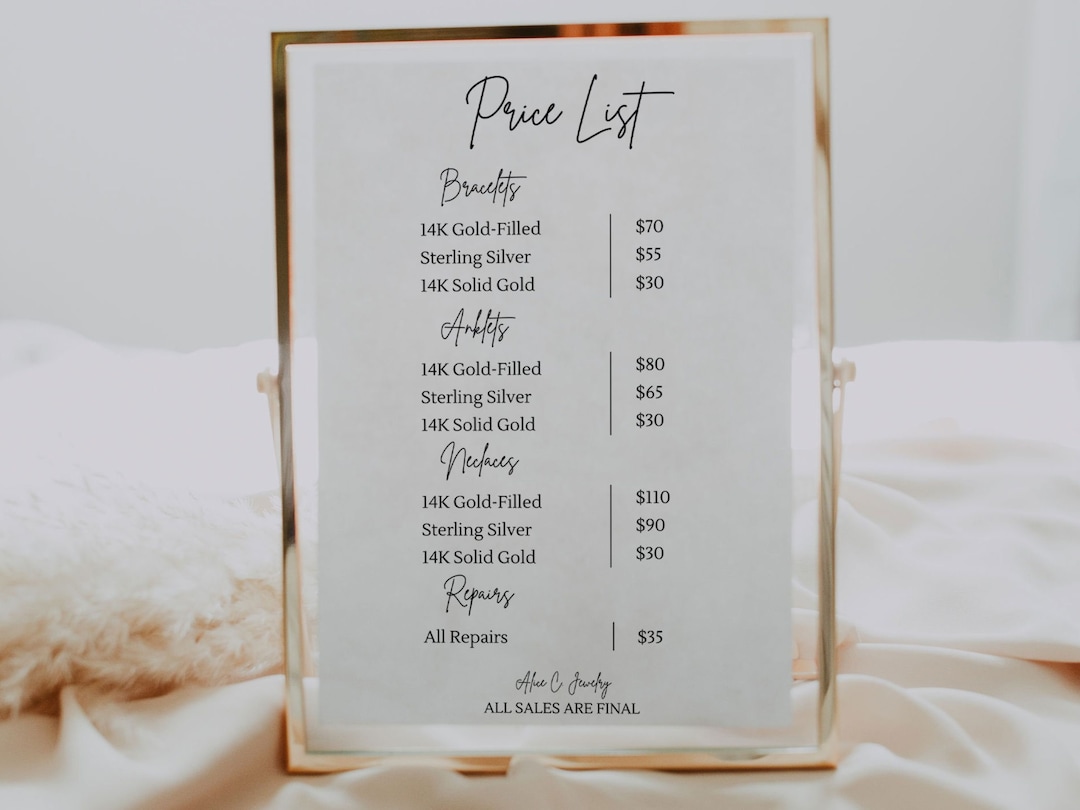 Price List
Bracelets
14K Gold-Filled $70
Sterling Silver $55
14K Solid Gold $30
Anklets
14K Gold-Filled $80
Sterling Silver $65
14K Solid Gold $30
Neclaces
14K Gold-Filled $110
Sterling Silver $90
14K Solid Gold $30
Repairs
All Repairs $35
Alice C Jewelry
ALL SALES ARE FINAL